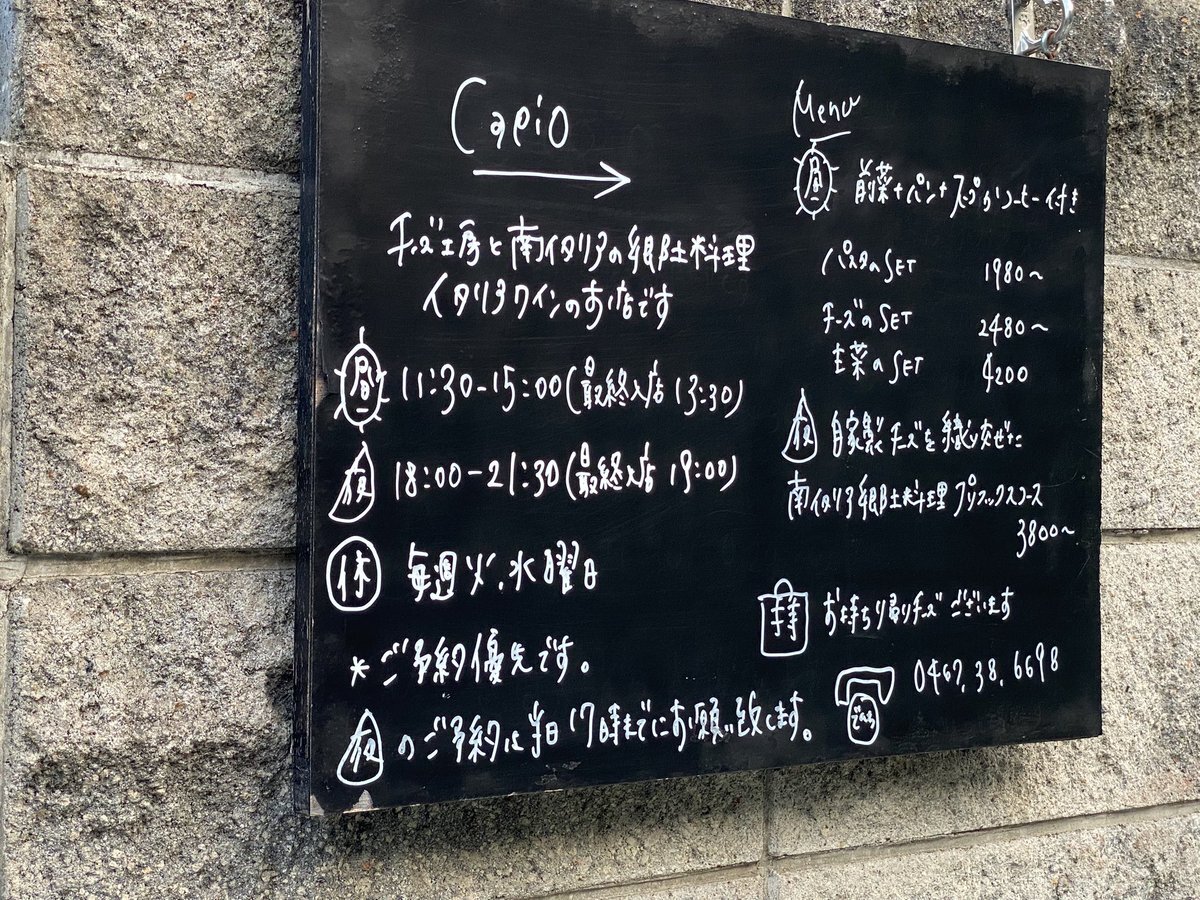 Capio
チーズ工房と南イタリアの郷土料理
イタリアワインのお店です
昼 11:30-15:00(最終入店 13:30)
夜 18:00-21:30(最終入店 19:00)
休 毎週火.水曜日
*ご予約優先です。
夜のご予約は当日17時までにお願い致します。
Menu
昼 前菜+パン+スープかコーヒー付き
パスタのSET 1980~
チーズのSET 2480~
主菜のSET 4200
夜 自家製チーズを織り交ぜた
南イタリア郷土料理プリフィックスコース
3800~
持 お持ち帰りチーズございます
でんわ 0467.38.6698